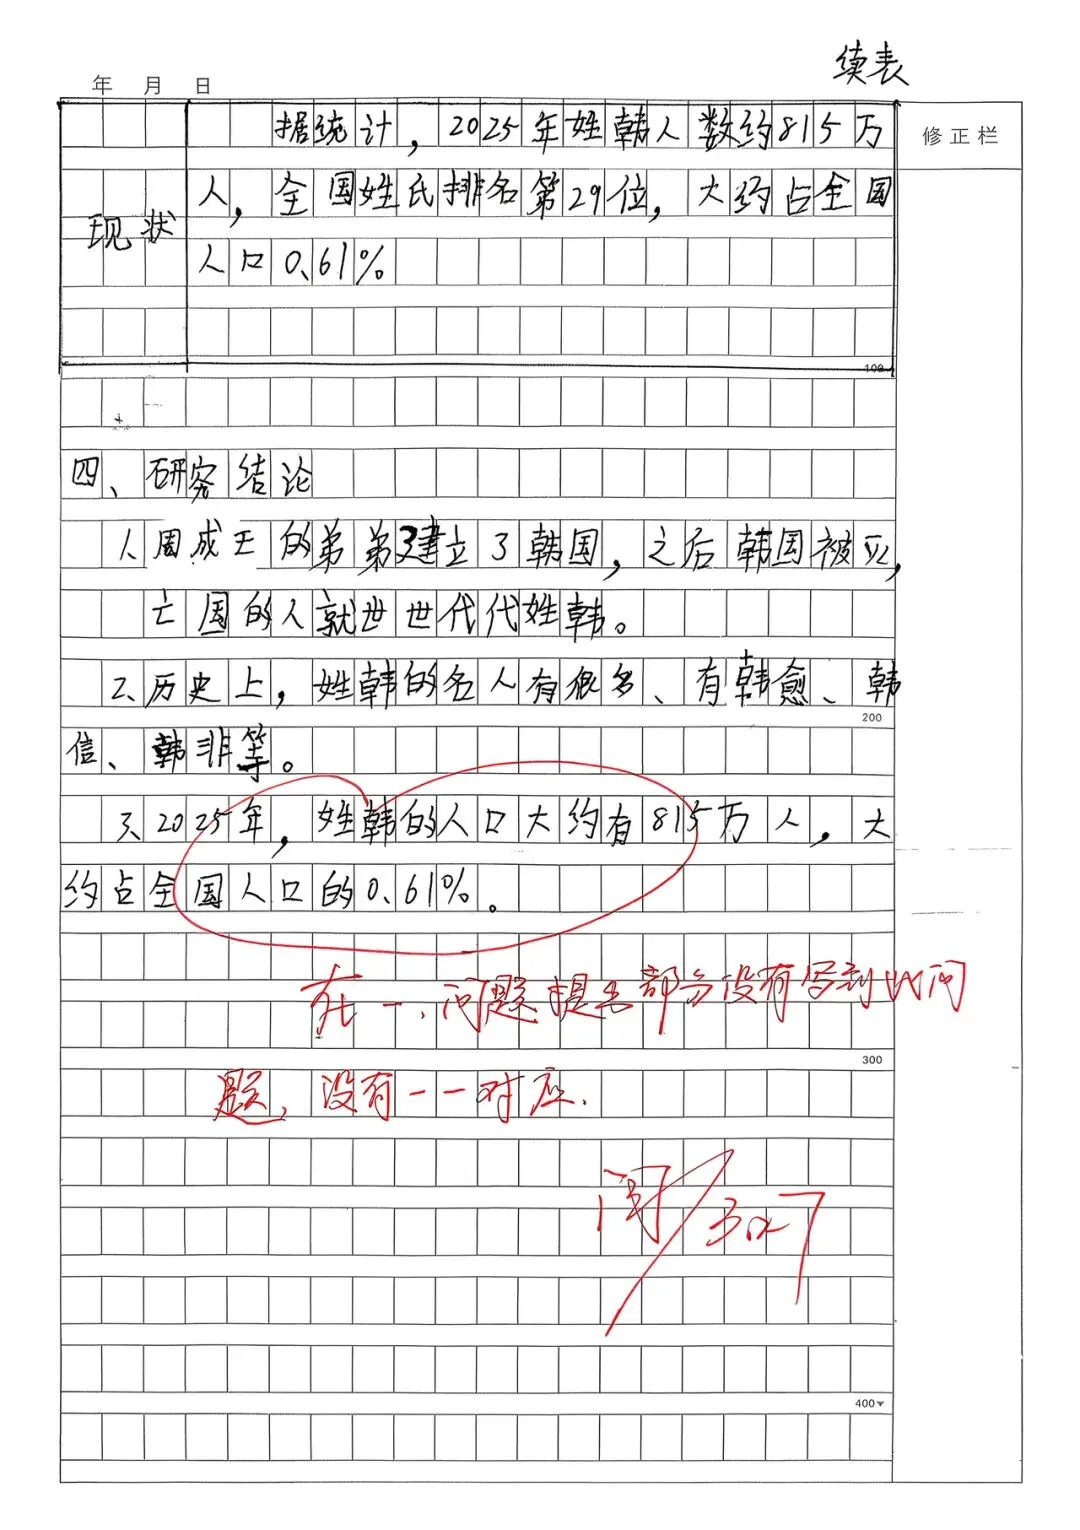 续表
年 月 日
修正栏
据统计，2025年姓韩人数约815万
人，全国姓氏排名第29位，大约占全国
现状
人口0.61%
100
四、研究结论
1.周成王的弟弟建立了韩国，之后韩国被灭，
亡国的人就世世代代姓韩。
2.历史上，姓韩的名人有很多、有韩愈、韩
200
信、韩非等。
3.2025年，姓韩的人口大约有815万人，大
约占全国人口的0.61%。
在一、问题提出部分没有写到此问
300
题，没有一一对应.
阅
400